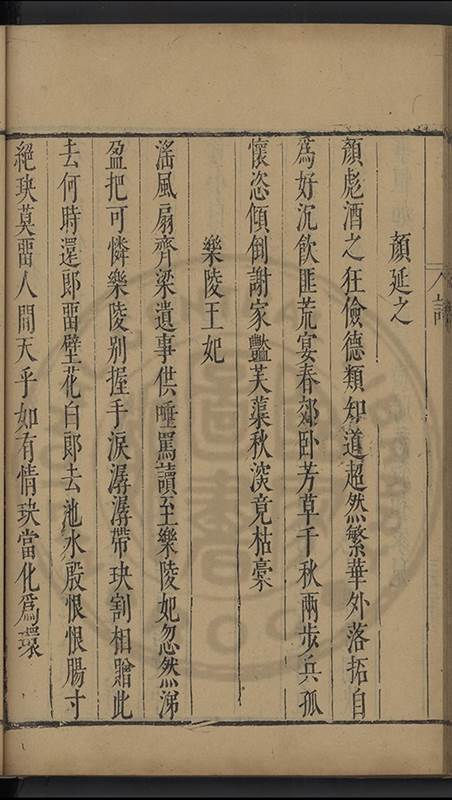 顏延之
顏彪酒之狂儉德類知道超然繁華外落拓自
為好沉飲匪荒宴春郊卧芳草千秋兩步兵孤
懷恣傾倒謝家豔芙蕖秋淡竟枯槁
樂陵王妃
滛風扇齊梁遺事供唾罵讀至樂陵妃忽然涕
盈把可憐樂陵别握手淚潺潺帶玦割相贈此
去何時還郎畱壁花白郎去池水殷恨恨腸寸
絕玦莫畱人間天乎如有情玦當化爲環